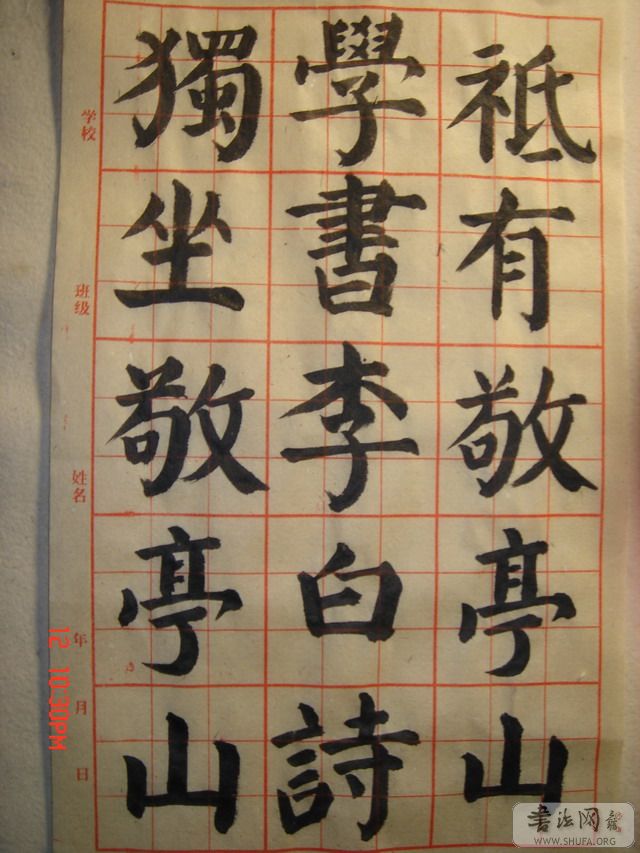 祗有敬亭山
學書李白詩
獨坐敬亭山
学校
班级
姓名
年
月
日
12 10:30PM
書法网
WWW.SHUFA.ORG